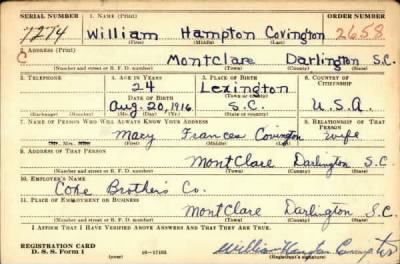 SERIAL NUMBER 1. NAME (Print) ORDER NUMBER
7274 William Hampton Covington 2658
(First) (Middle) (Last)
2. ADDRESS (Print)
C MontClare Darlington S.C.
(Number and street or R. F. D. number) (Town) (County) (State)
3. TELEPHONE 4. AGE IN YEARS 5. PLACE OF BIRTH 6. COUNTRY OF CITIZENSHIP
24 Lexington
DATE OF BIRTH (Town or county)
Aug. 20, 1916 S.C. U.S.A.
(Exchange) (Number) (Mo.) (Day) (Yr.) (State or country)
7. NAME OF PERSON WHO WILL ALWAYS KNOW YOUR ADDRESS 8. RELATIONSHIP OF THAT PERSON
Mary Frances Covington wife
(Mr., Mrs., Miss) (First) (Middle) (Last)
9. ADDRESS OF THAT PERSON
MontClare Darlington S.C.
(Number and street or R. F. D. number) (Town) (County) (State)
10. EMPLOYER'S NAME
Coke Brothers Co.
11. PLACE OF EMPLOYMENT OR BUSINESS
MontClare Darlington S.C.
(Number and street or R. F. D. number) (Town) (County) (State)
I AFFIRM THAT I HAVE VERIFIED ABOVE ANSWERS AND THAT THEY ARE TRUE.
REGISTRATION CARD
D. S. S. Form 1 (over) William Hampton Covington
(Registrant's signature)